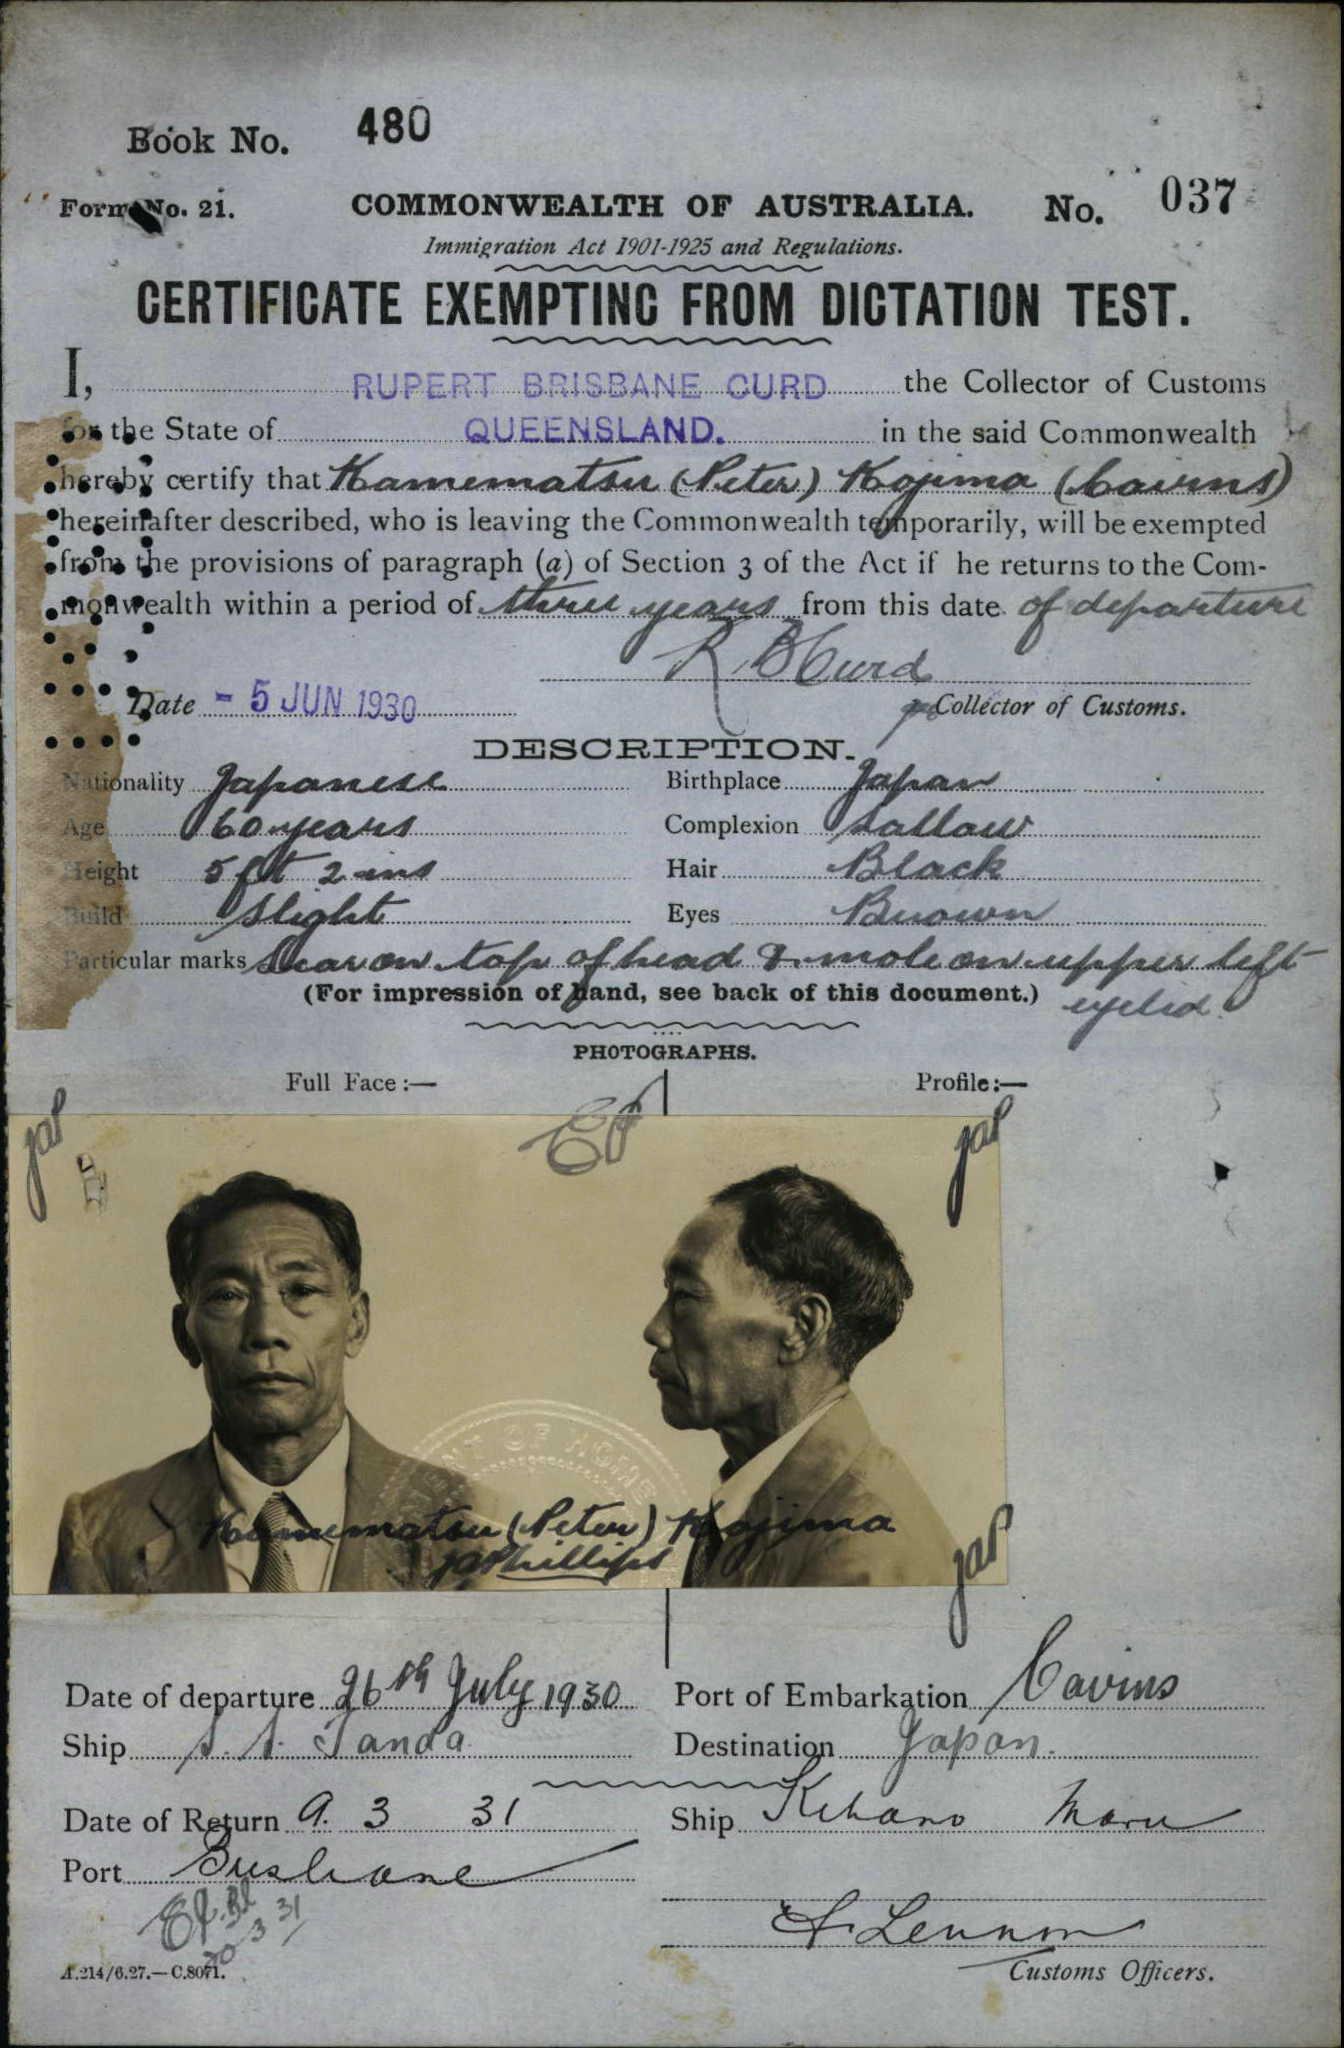 Book No. 480
Form No. 21. COMMONWEALTH OF AUSTRALIA. No. 037
Immigration Act 1901-1925 and Regulations.
CERTIFICATE EXEMPTING FROM DICTATION TEST.
I, RUPERT BRISBANE CURD the Collector of Customs
for the State of QUEENSLAND. in the said Commonwealth
hereby certify that Kamematsu (Peter) Kojima (Cairns)
hereinafter described, who is leaving the Commonwealth temporarily, will be exempted
from the provisions of paragraph (a) of Section 3 of the Act if he returns to the Com-
monwealth within a period of three years from this date of departure
R B Curd
Date - 5 JUN 1930 Collector of Customs.
DESCRIPTION.
Nationality Japanese Birthplace Japan
Age 60 years Complexion Sallow
Height 5 ft 2 ins Hair Black
Build Slight Eyes Brown
Particular marks Scar on top of head & mole on upper left
(For impression of hand, see back of this document.) eyelid.
PHOTOGRAPHS.
Full Face:— Profile:—
JAP JAP
OF HOME
Kamematsu (Peter) Kojima
JAPhillips
JAP
Date of departure 26th July 1930 Port of Embarkation Cairns
Ship S. S. Tanda Destination Japan.
Date of Return 9. 3 31 Ship Kitano Maru
Port Brisbane
20 3 31
Lennon
A.214/6.27.—C.8071. Customs Officers.